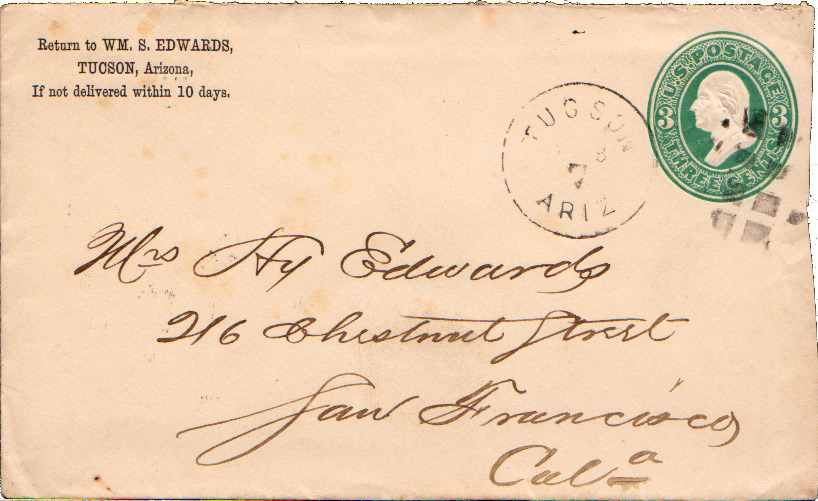 Return to WM. S. EDWARDS,
TUCSON, Arizona,
If not delivered within 10 days.
U.S. POSTAGE
3 3
THREE CENTS
TUCSON
8
7
ARIZ
Mrs Hy Edwards
216 Chestnut Street
San Francisco
Cala